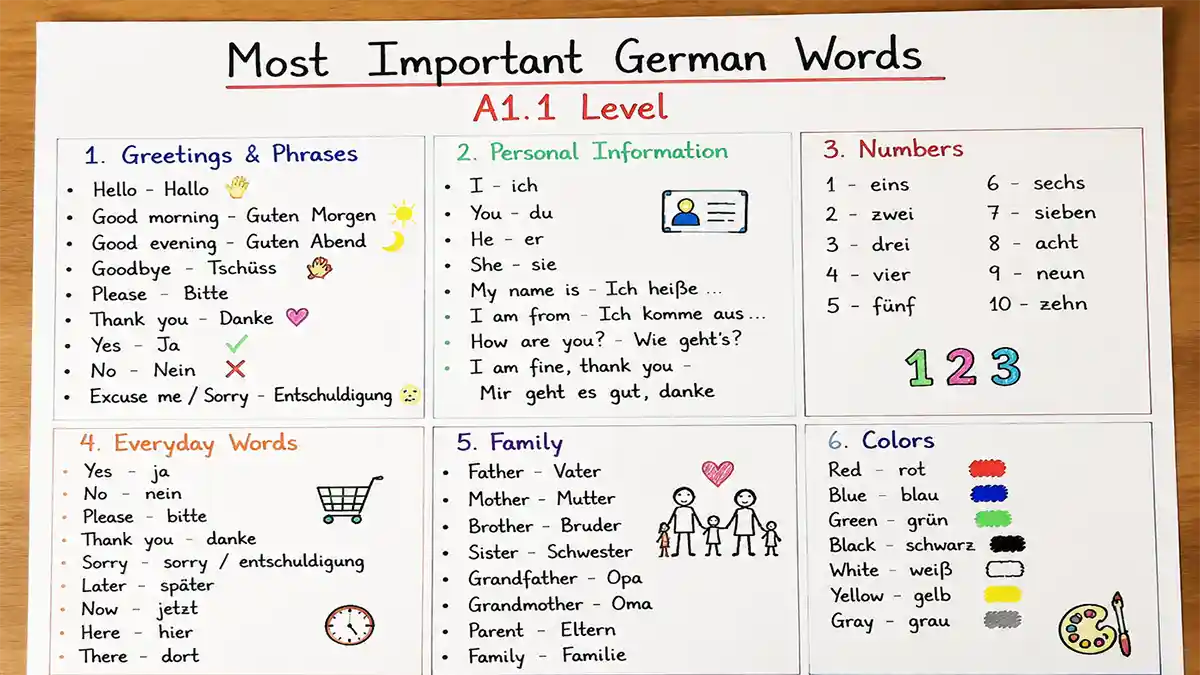 Most Important German Words
A1.1 Level
1. Greetings & Phrases
• Hello - Hallo
• Good morning - Guten Morgen
• Good evening - Guten Abend
• Goodbye - Tschüss
• Please - Bitte
• Thank you - Danke
• Yes - Ja
• No - Nein
• Excuse me / Sorry - Entschuldigung
2. Personal Information
• I - ich
• You - du
• He - er
• She - sie
• My name is - Ich heiße ...
• I am from - Ich komme aus ...
• How are you? - Wie geht's?
• I am fine, thank you -
Mir geht es gut, danke
3. Numbers
1 - eins
2 - zwei
3 - drei
4 - vier
5 - fünf
6 - sechs
7 - sieben
8 - acht
9 - neun
10 - zehn
1 2 3
4. Everyday Words
• Yes - ja
• No - nein
• Please - bitte
• Thank you - danke
• Sorry - sorry / entschuldigung
• Later - später
• Now - jetzt
• Here - hier
• There - dort
5. Family
• Father - Vater
• Mother - Mutter
• Brother - Bruder
• Sister - Schwester
• Grandfather - Opa
• Grandmother - Oma
• Parent - Eltern
• Family - Familie
6. Colors
Red - rot
Blue - blau
Green - grün
Black - schwarz
White - weiß
Yellow - gelb
Gray - grau